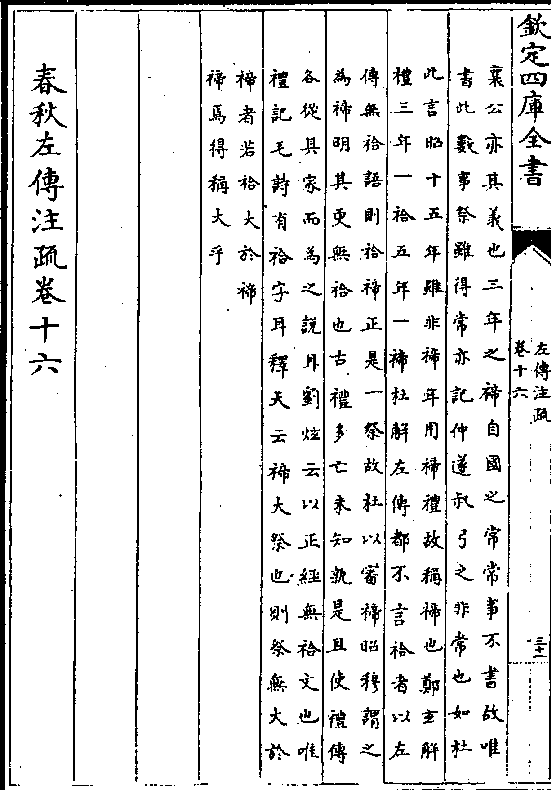 欽定四庫全書
左傳注疏
卷十六
三十一
襄公亦其義也三年之禘自國之常常事不書故唯
書此數事祭雖得常亦記仲遂叔弓之非常也如杜
此言昭十五年雖非禘年用禘禮故稱禘也鄭玄解
禮三年一祫五年一禘杜解左傳都不言祫者以左
傳無祫語則祫禘正是一祭故杜以審禘昭穆謂之
為禘明其更無祫也古禮多亡未知孰是且使禮傳
各從其家而為之說耳劉炫云以正經無祫文也唯
禮記毛詩有祫字耳釋天云禘大祭也則祭無大於
禘者若祫大於禘
禘焉得稱大乎
春秋左傳注疏卷十六